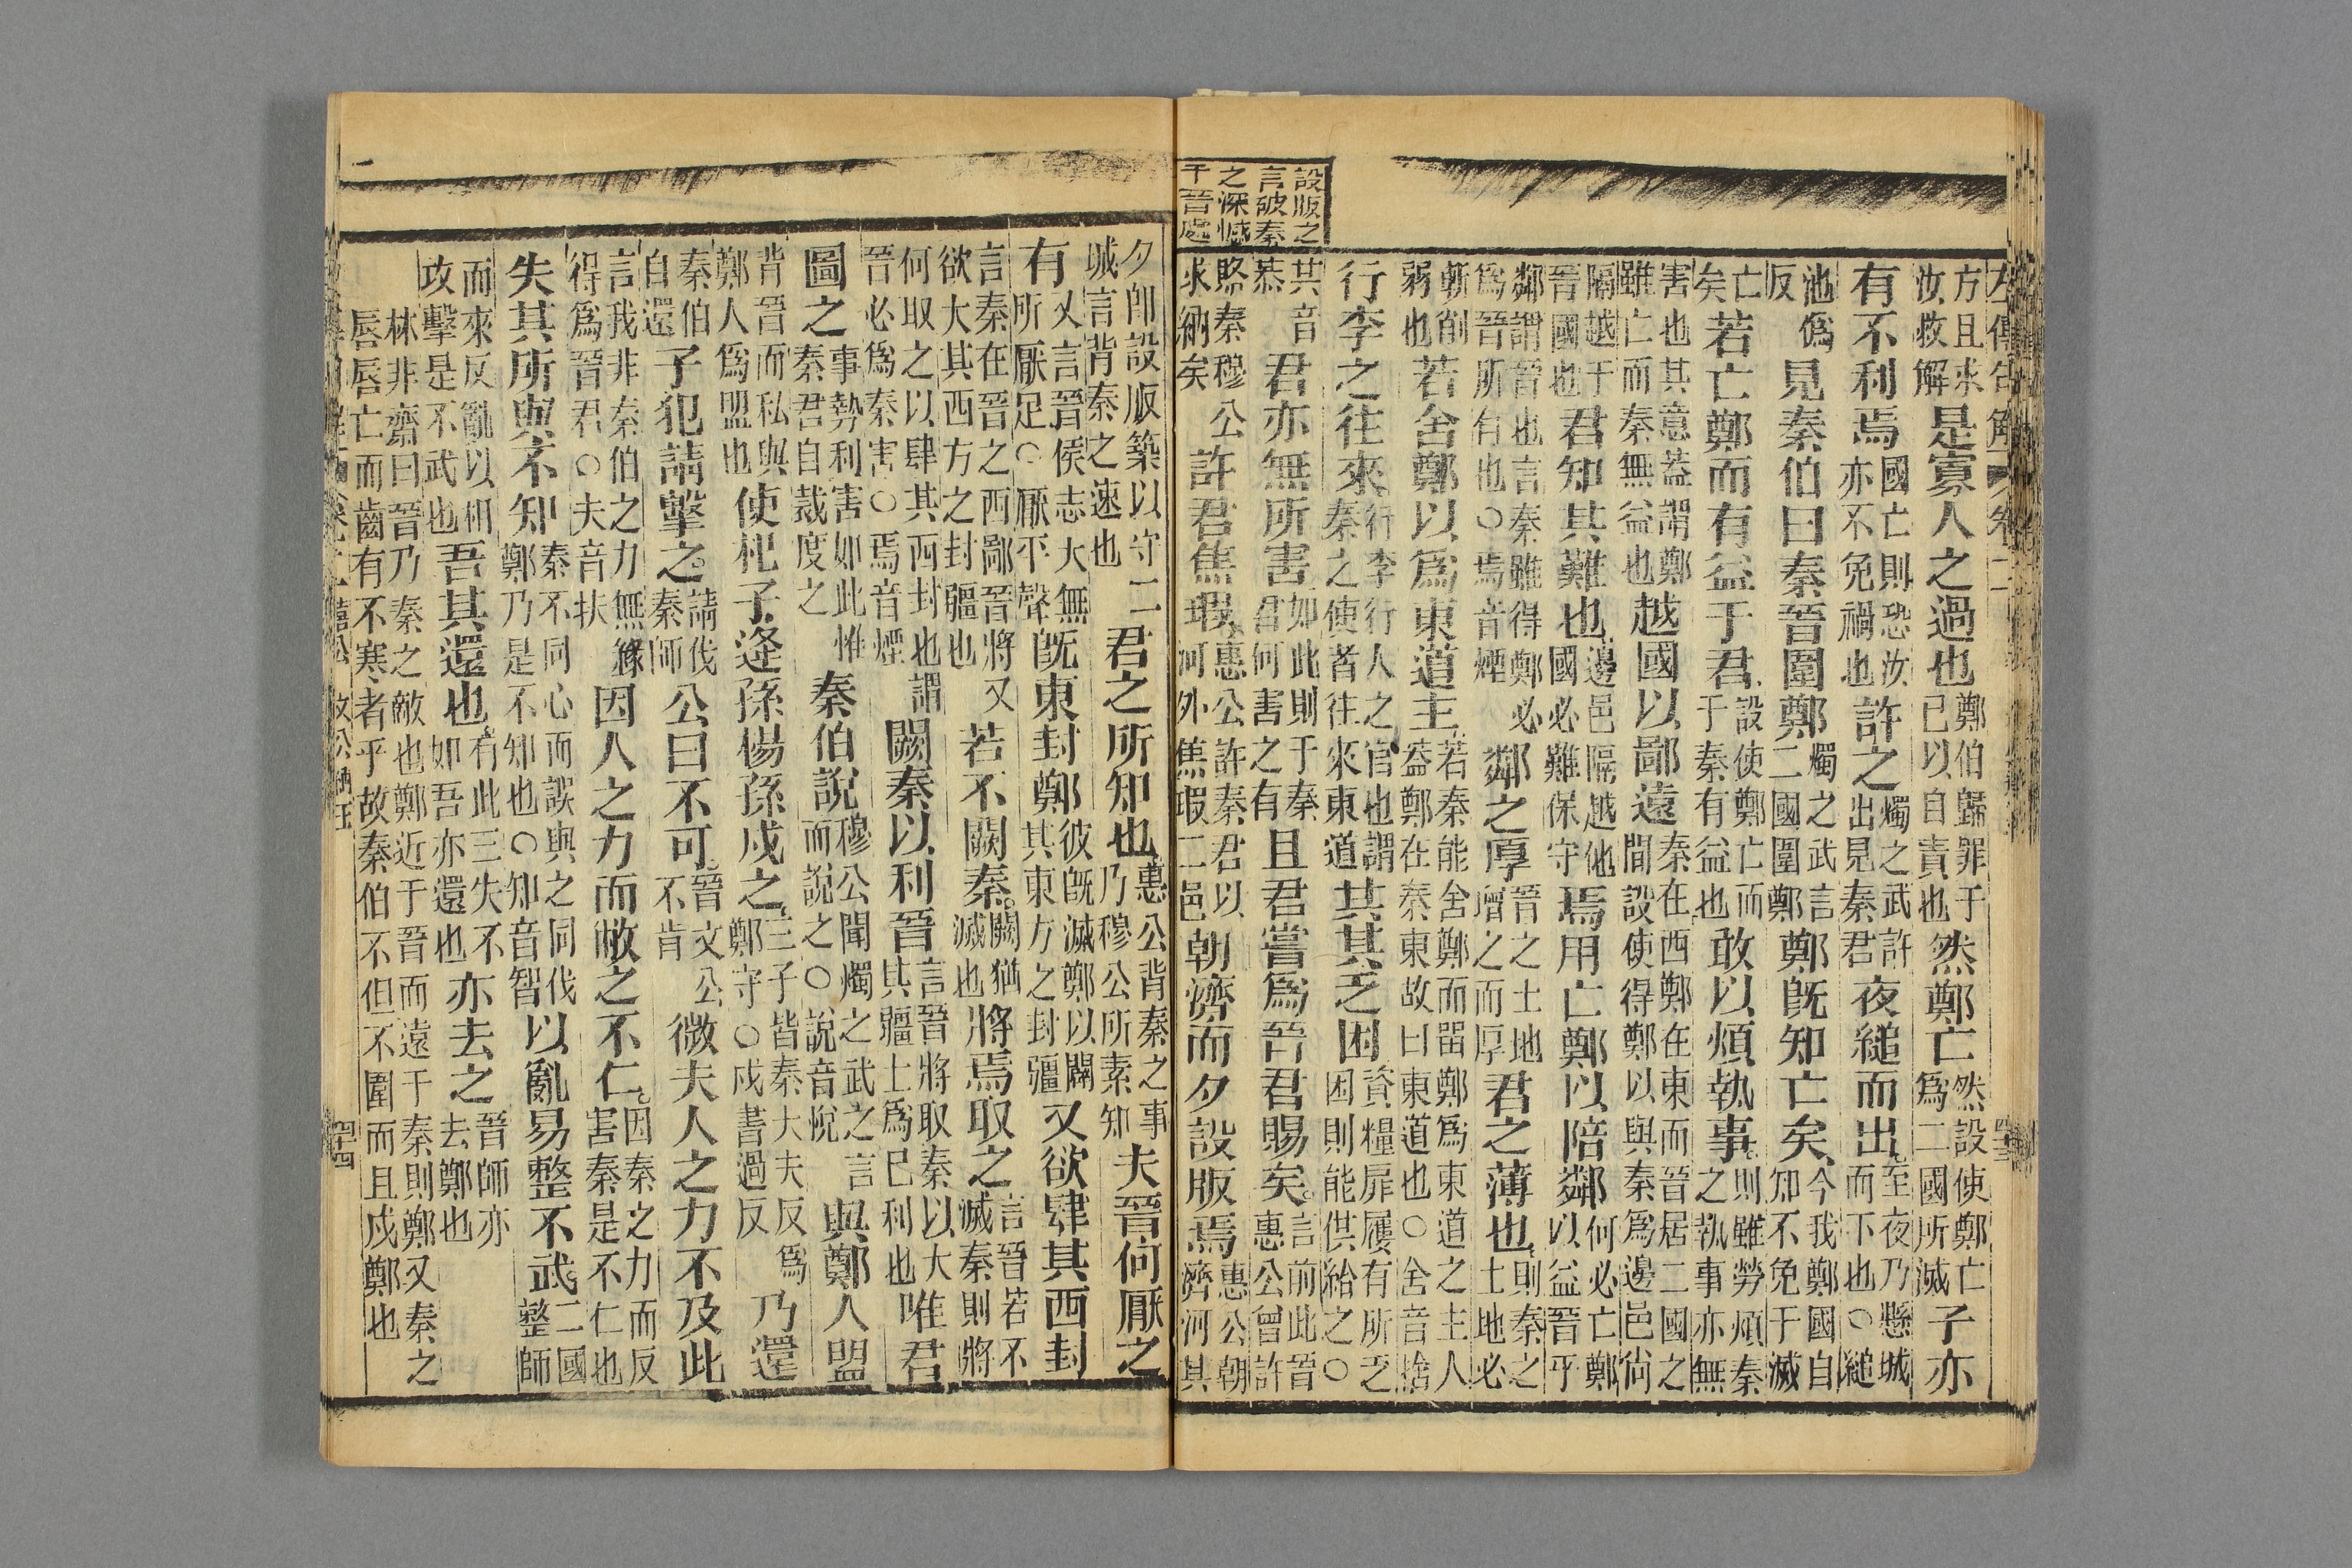 左傳句解 卷二
方且求汝救解是寡人之過也鄭伯歸罪于已以自責也然鄭亡然設使鄭亡爲二國所滅子亦
有不利焉國亡則恐汝亦不免禍也許之燭之武許出見秦君夜縋而出至夜乃懸城而下也○縋
池僞反見秦伯曰秦晉圍鄭燭之武言二國圍鄭鄭既知亡矣今我鄭國自知不免于滅
亡矣若亡鄭而有益于君設使鄭亡而于秦有益也敢以煩執事則雖勞煩秦之執事亦無
害也其意蓋謂鄭雖仁而秦無益也越國以鄙遠秦在西鄭在東而晉居二國之間設使得鄭以與秦爲邊邑尙
隔越于晉國也君知其難也邊邑隔越他國必難保守焉用亡鄭以陪鄰何必亡鄭以益晉乎
鄰謂晉也言秦雖得鄭必爲晉所有也○焉音煙鄰之厚晉之土地增之而厚君之薄也則秦之土地必
斬削弱也若舍鄭以爲東道主若秦能舍鄭而畱鄭爲東道之主人蓋鄭在秦東故曰東道也○舍音捨
行李之往來行李行人之官也謂秦之使者往來東道其其乏困資糧屝屨有所乏困則能供給之○
其音恭君亦無所害如此則于秦君何害之有且君嘗爲晉君賜矣言前此晉惠公曾許
賂秦穆公求納矣許君焦瑕惠公許秦君以河外焦瑕二邑朝濟而夕設版焉惠公朝濟河其
設版之
言破秦
之深憾
于晉處
夕卽設版築以守城言背秦之速也二君之所知也惠公背秦之事乃穆公所素知夫晉何厭之
有又言晉侯志大無所厭足○厭平聲既東封鄭彼既滅鄭以闢其東方之封疆又欲肆其西封
言秦在晉之西鄙晉將又欲大其西方之封疆也若不闕秦闕猶滅也將焉取之言晉若不滅秦則將
何取之以肆其西封也謂晉必爲秦害○焉音煙闕秦以利晉言晉將取秦以大其疆土爲已利也唯君
圖之事勢利害如此惟秦君自裁度之秦伯說穆公聞燭之武之言而說之○說音悅與鄭人盟
背晉而私與鄭人爲盟也使杞子逢孫楊孫戍之三子皆秦大夫反爲鄭守○戍書過反乃還
秦伯自還子犯請擊之請伐秦師公曰不可晉文公不肯微夫人之力不及此
言我非秦伯之力無緣得爲晉君○夫音扶因人之力而敝之不仁因秦之力而反害秦是不仁也
失其所與不知秦不同心而誤與之同伐鄭乃是不知也○知音智以亂易整不武二國整師
而來反亂以相攻擊是不武也吾其還也有此三失不如吾亦還也亦去之晉師亦去鄭也
林非齋曰晉乃秦之敵也鄭近于晉而遠于秦則鄭又秦之唇唇亡而齒有不寒者乎故秦伯不但不圍而且戍鄭也